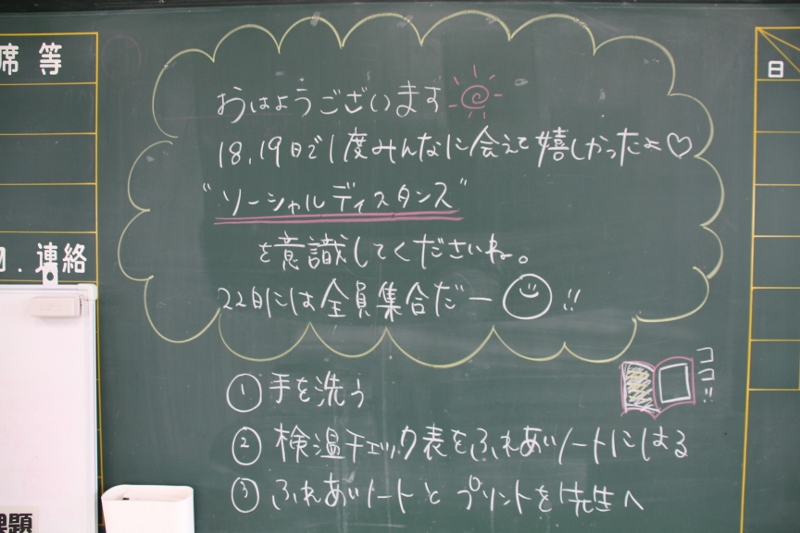 席等
日
おはようございます
18、19日で1度みんなに会えて嬉しかったよ♡
"ソーシャルディスタンス"
を意識してくださいね。
連絡
22日には全員集合だー!!
ココ!!
①手を洗う
②検温チェック表をふれあいノートにはる
③ふれあいノートとプリントを先生へ
課題